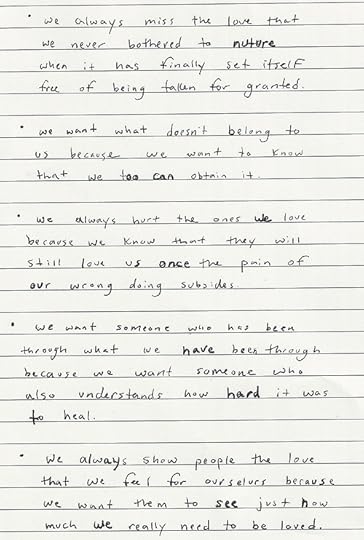 • we always miss the love that
we never bothered to nuture
when it has finally set itself
free of being taken for granted.
• we want what doesn't belong to
us because we want to know
that we too can obtain it.
• we always hurt the ones we love
because we know that they will
still love us once the pain of
our wrong doing subsides.
• we want someone who has been
through what we have been through
because we want someone who
also understands how hard it was
to heal.
• we always show people the love
that we feel for ourselves because
we want them to see just how
much we really need to be loved.